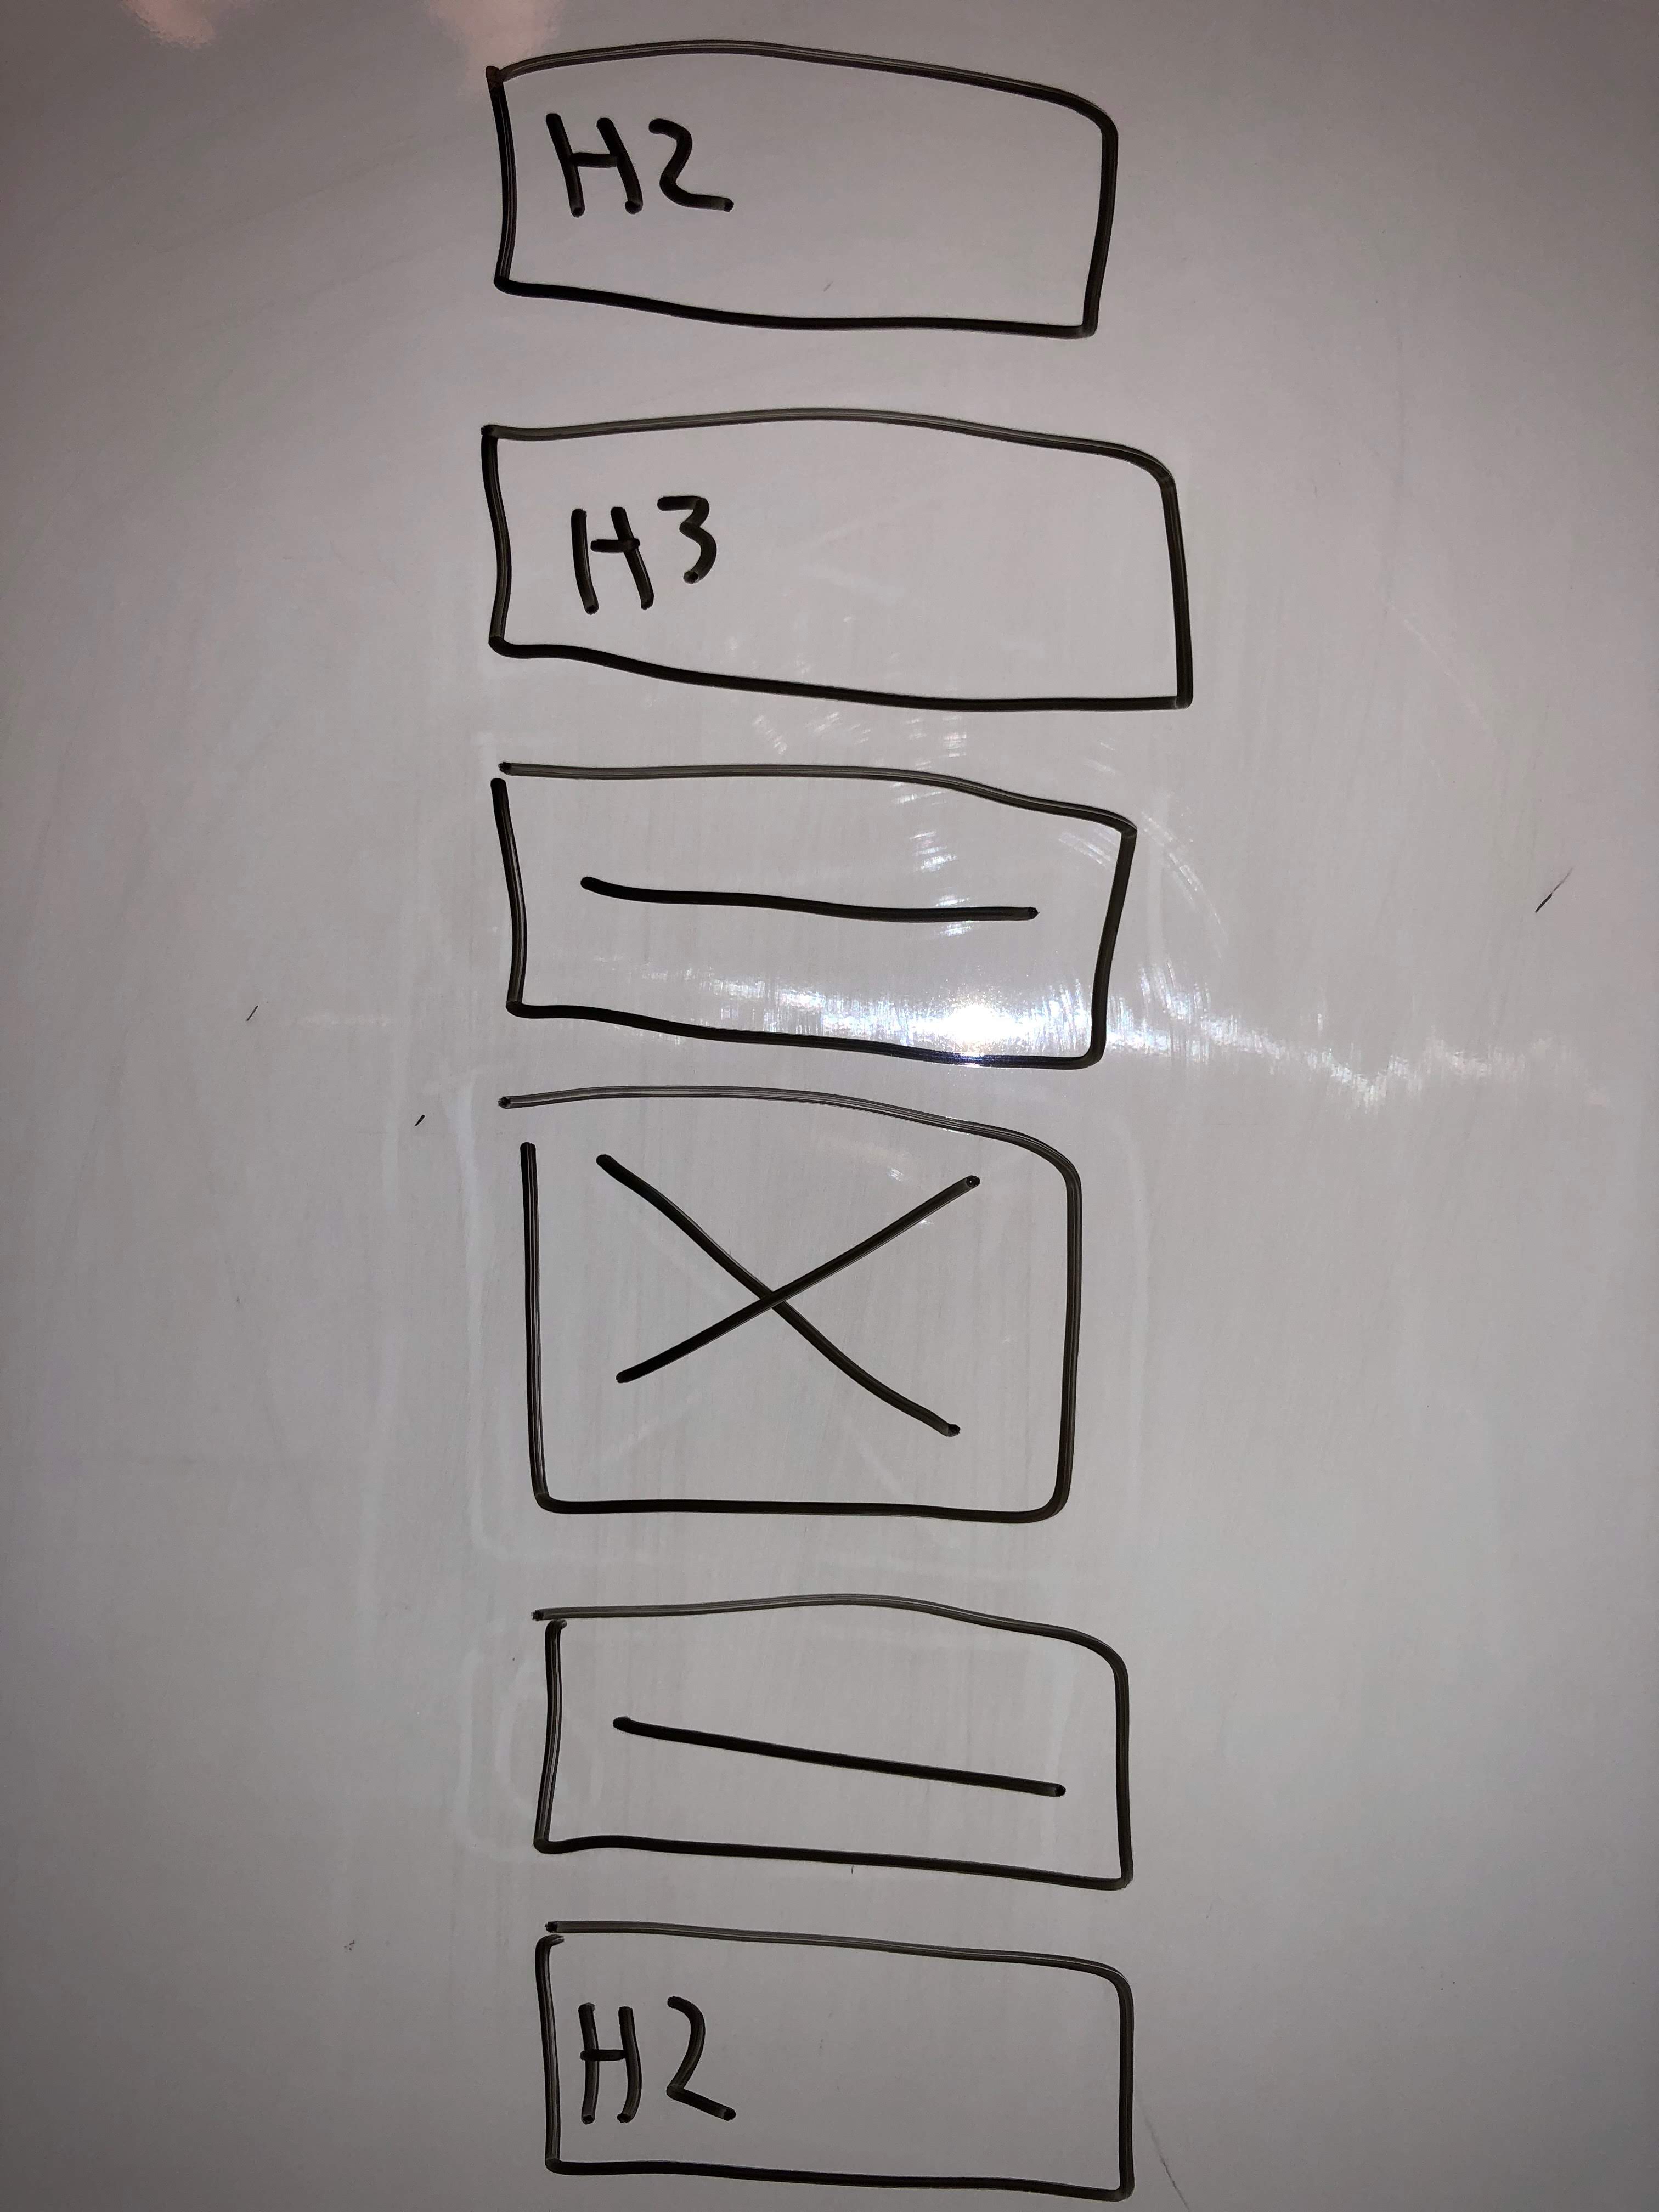 H2
H3
H2